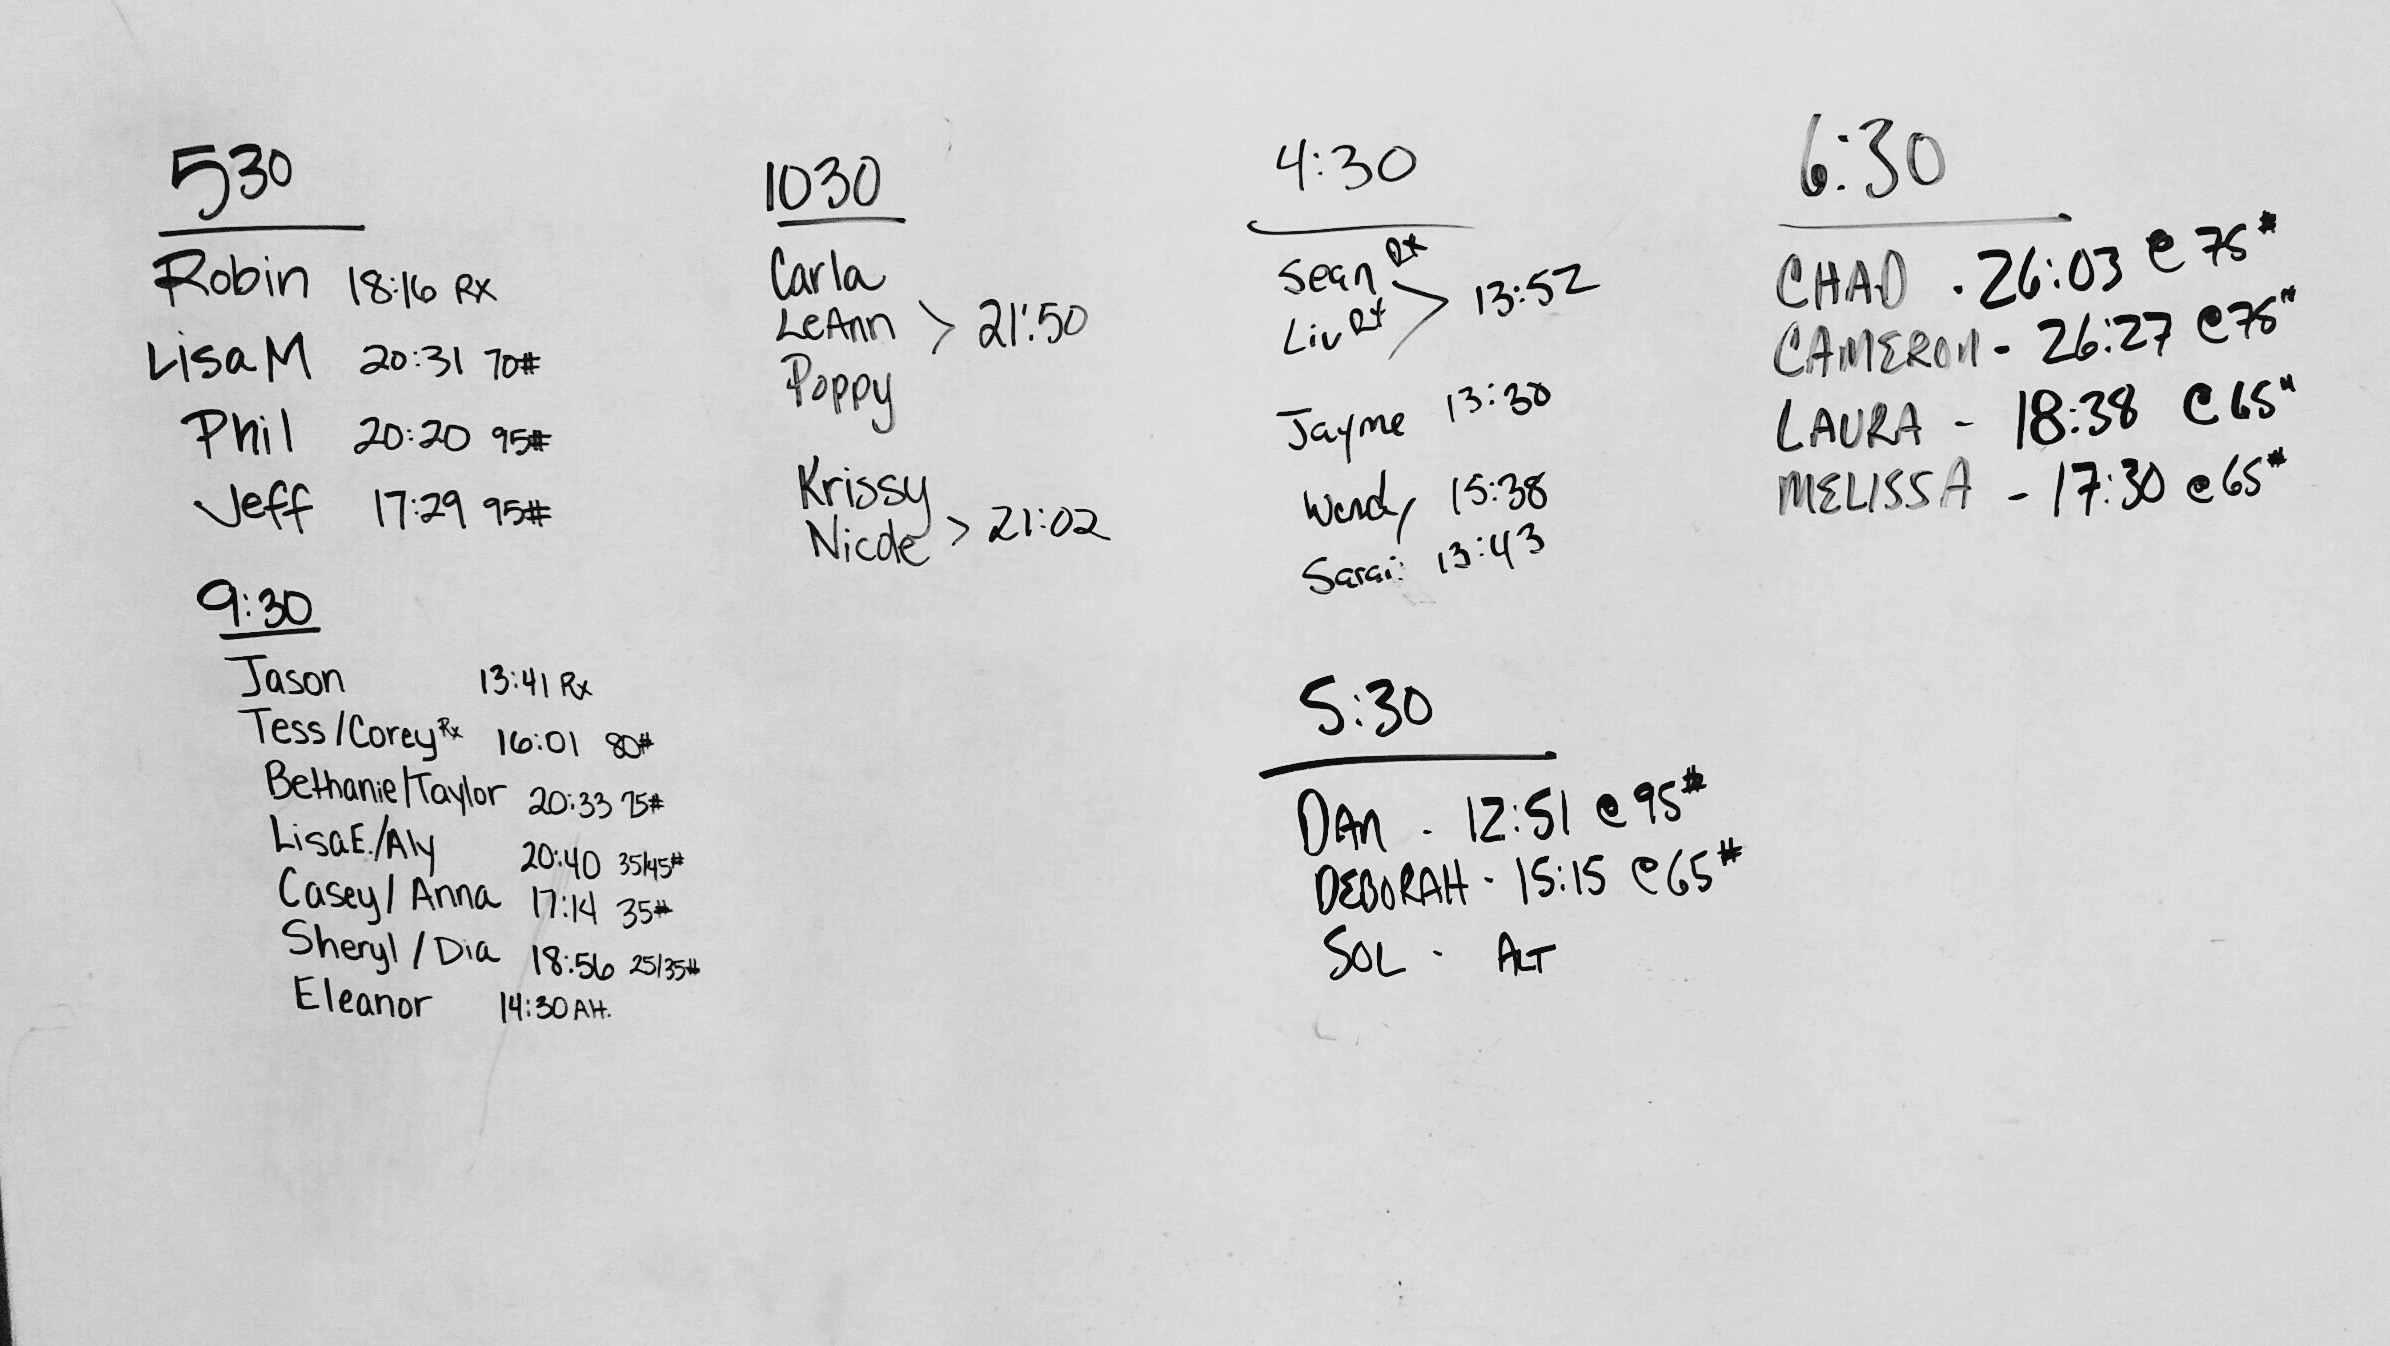 530
Robin 18:16 RX
Lisa M 20:31 70#
Phil 20:20 95#
Jeff 17:29 95#
9:30
Jason 13:41 Rx
Tess/Corey Rx 16:01 80#
Bethanie/Taylor 20:33 75#
Lisa E./Aly 20:40 35/45#
Casey/Anna 17:14 35#
Sheryl/Dia 18:56 25/35#
Eleanor 14:30 Alt.
1030
Carla
LeAnn > 21:50
Poppy
Krissy
Nicole > 21:02
4:30
Sean Rx
Liv Rx > 13:52
Jayme 13:30
Wendy 15:38
Sarai 13:43
5:30
DAN - 12:51 @ 95#
DEBORAH - 15:15 @ 65#
SOL - ALT
6:30
CHAD - 26:03 @ 75#
CAMERON - 26:27 @ 75#
LAURA - 18:38 @ 65#
MELISSA - 17:30 @ 65#